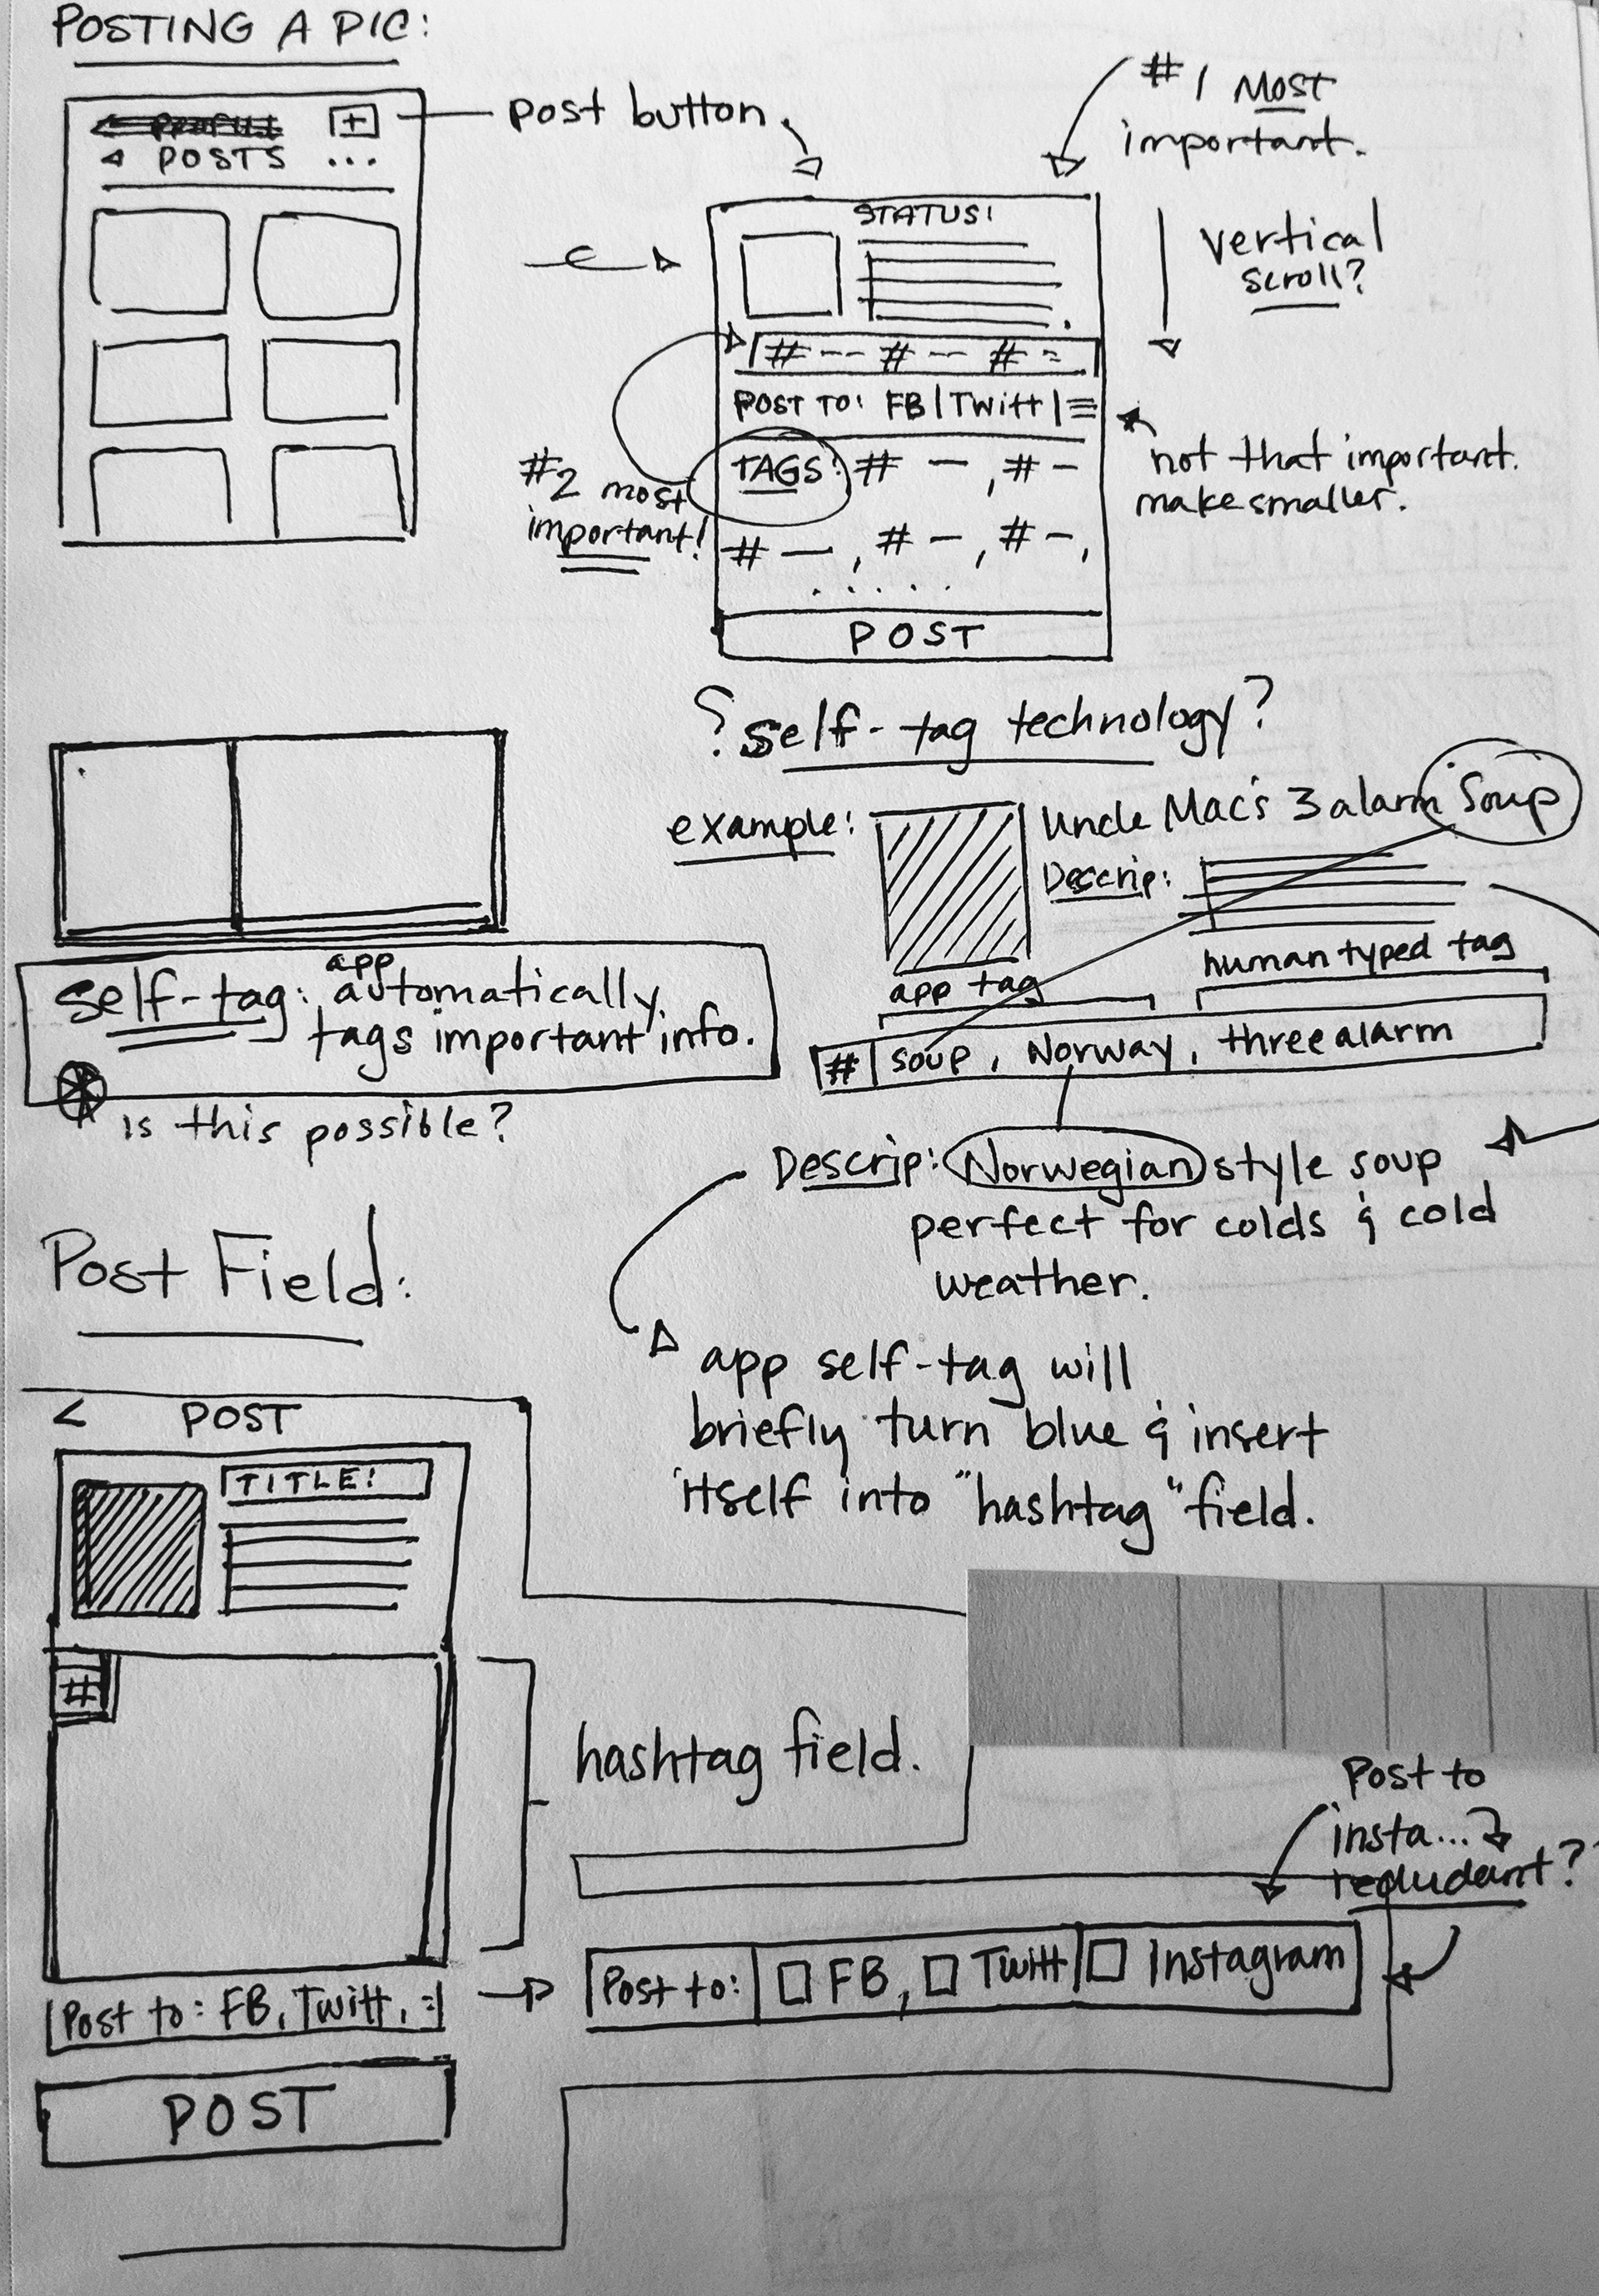 POSTING A PIC:
+
POSTS ...
post button.
#1 MOST
important.
STATUS:
vertical
scroll?
# -- # -- # =
POST TO: FB | TWitt | ≡
not that important.
make smaller.
TAGS: # — , # —
#2 most
important!
# — , # — , # — ,
. . . . .
POST
? self-tag technology?
example:
Uncle Mac's 3 alarm Soup
Descrip:
human typed tag
app tag
# | soup, Norway, three alarm
app
self-tag: automatically
tags important info.
is this possible?
Descrip: Norwegian style soup
perfect for colds & cold
weather.
app self-tag will
briefly turn blue & insert
itself into "hashtag" field.
Post Field:
< POST
TITLE:
#
hashtag field.
Post to
insta...
redudant?
Post to: FB, Twitt, =
Post to: FB, Twitt Instagram
POST